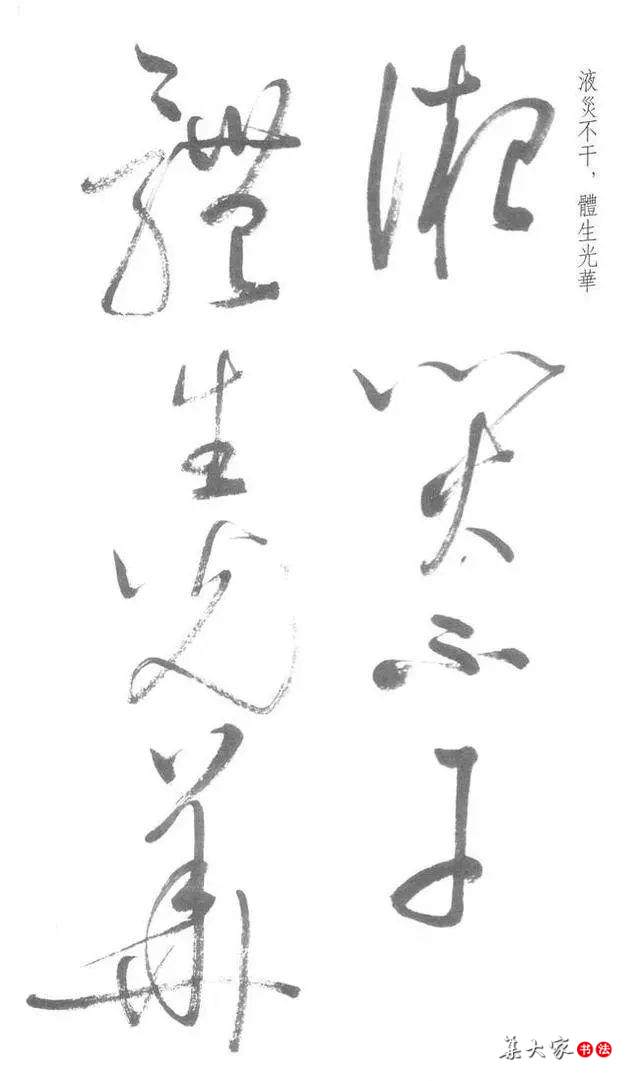 液災不干，體生光華
液災不干
體生光華
集大家书法